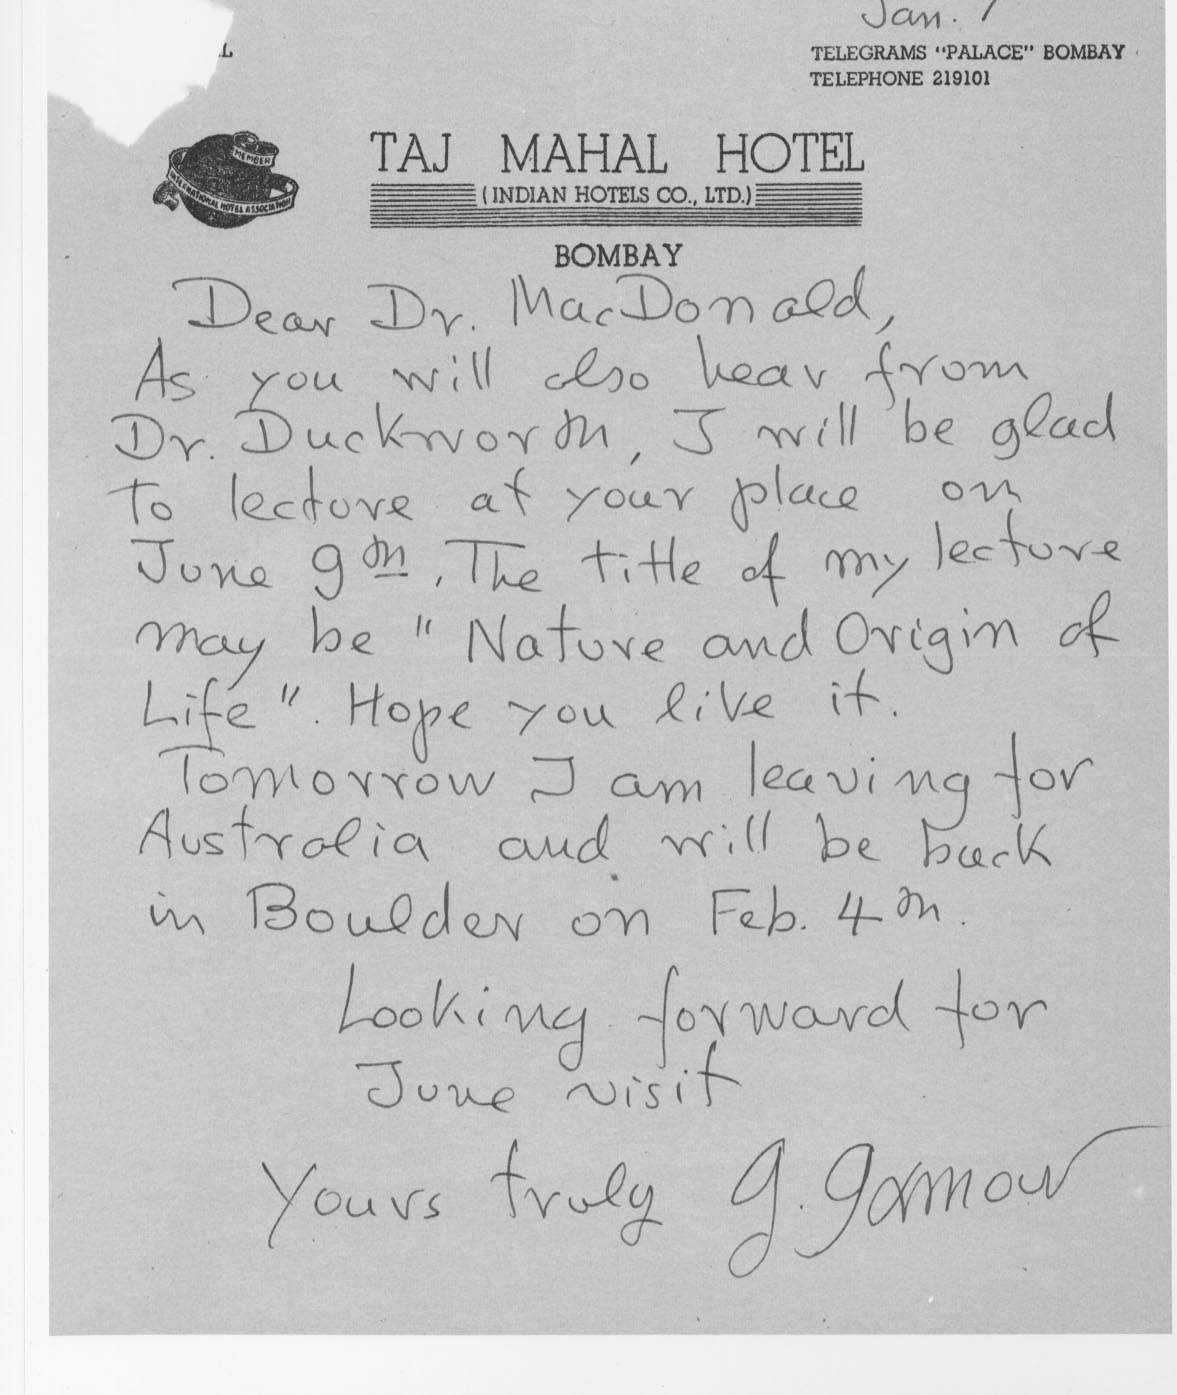 Jan. 7
TELEGRAMS "PALACE" BOMBAY
TELEPHONE 219101
MEMBER
INTERNATIONAL HOTEL ASSOCIATION
TAJ MAHAL HOTEL
(INDIAN HOTELS CO., LTD.)
BOMBAY
Dear Dr. MacDonald,
As you will also hear from
Dr. Duckworth, I will be glad
to lecture at your place on
June 9th. The title of my lecture
may be "Nature and Origin of
Life". Hope you like it.
Tomorrow I am leaving for
Australia and will be back
in Boulder on Feb. 4th.
Looking forward for
June visit
Yours truly G. Gamow